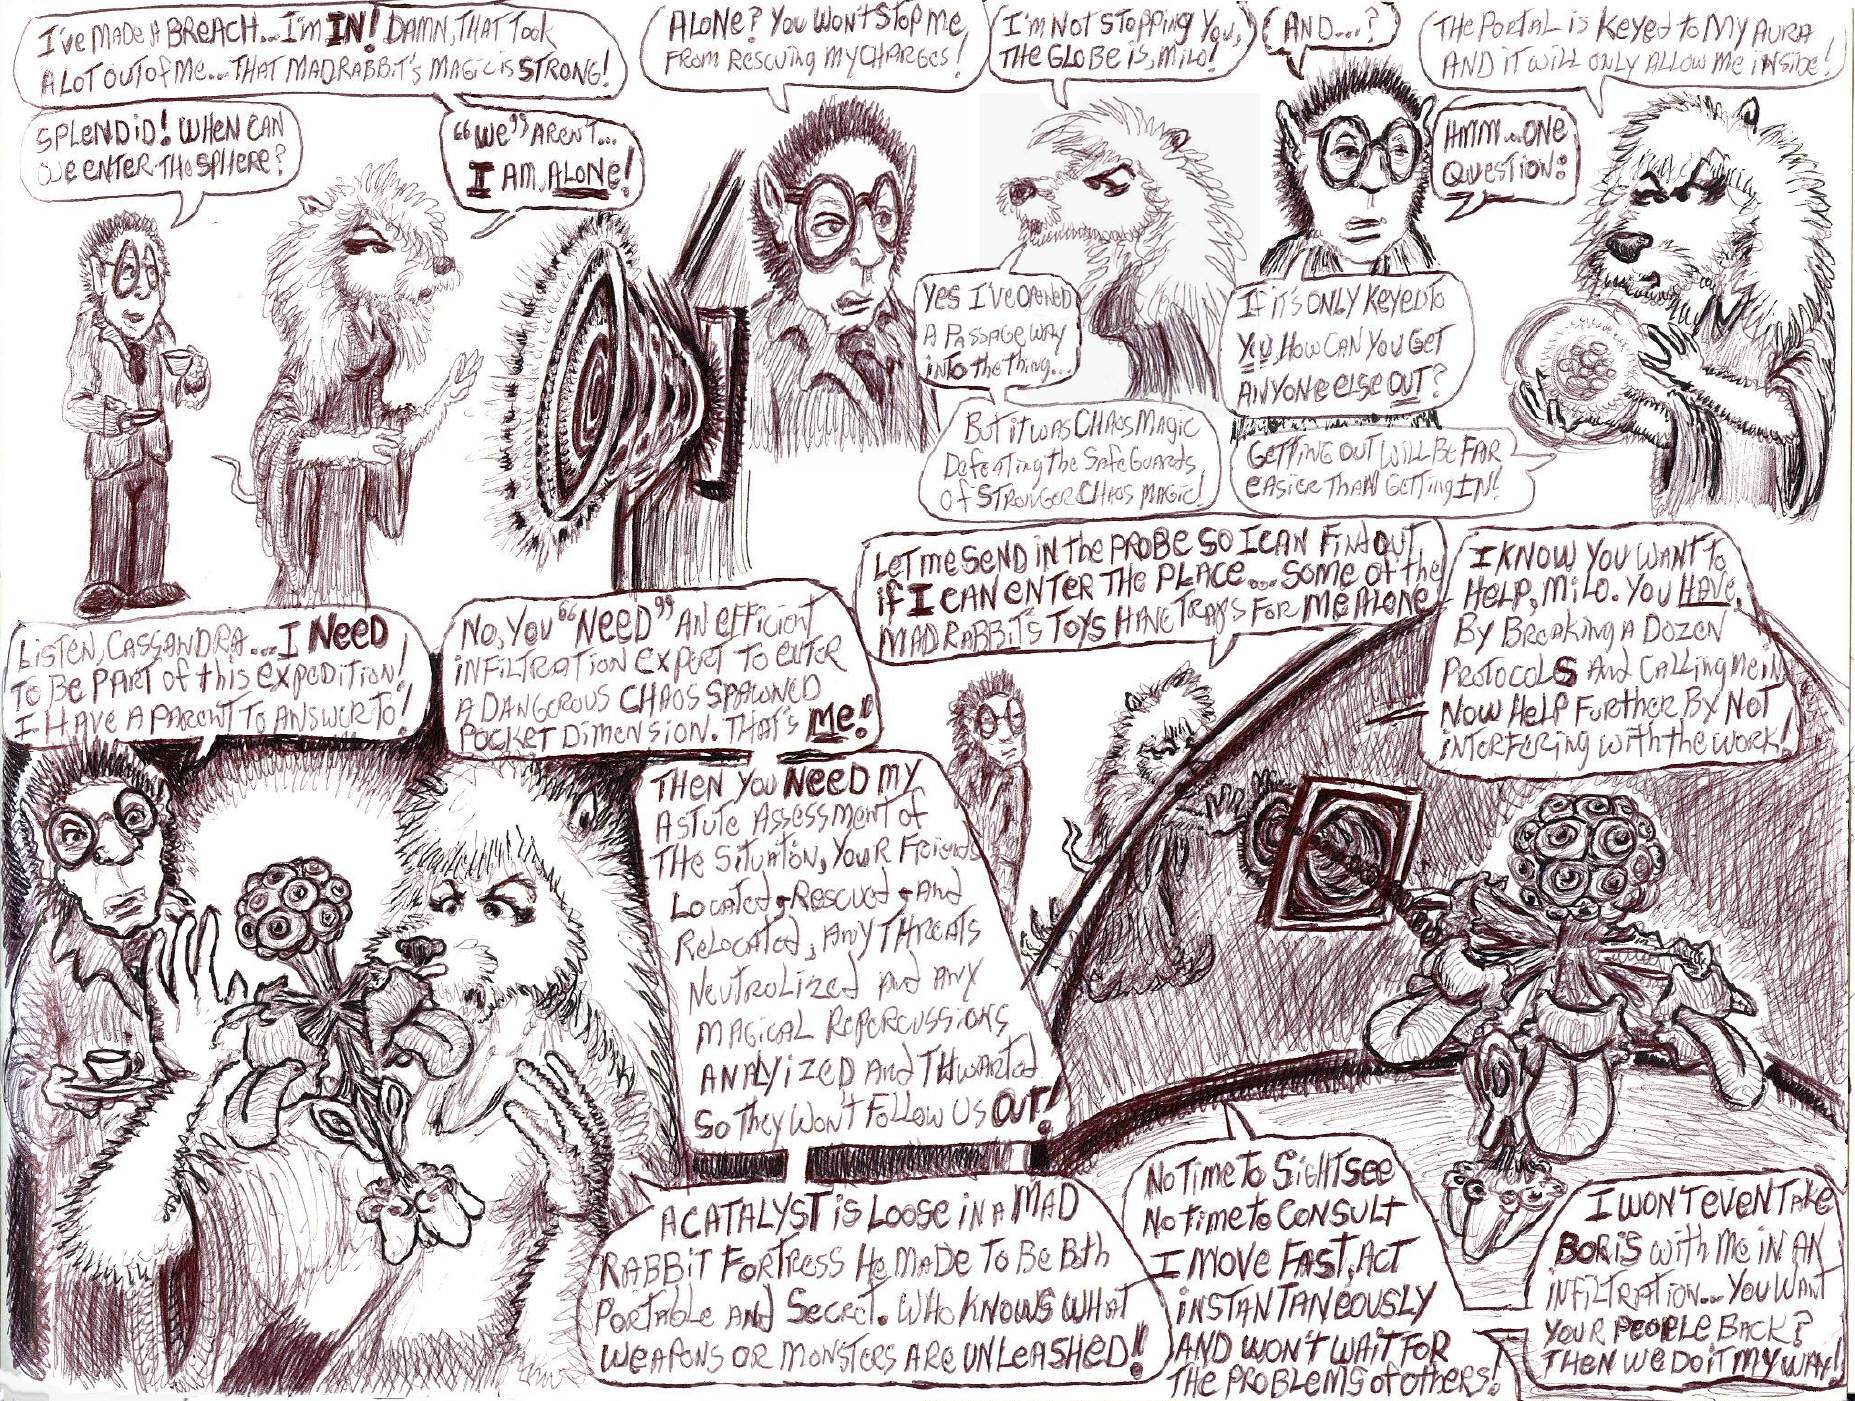 I'VE MADE A BREACH... I'M IN! DAMN, THAT TOOK
A LOT OUT OF ME... THAT MADRABBIT'S MAGIC IS STRONG!
SPLENDID! WHEN CAN
WE ENTER THE SPHERE?
"WE" AREN'T...
I AM, ALONE!
ALONE? YOU WON'T STOP ME,
FROM RESCUING MY CHARGES!
I'M NOT STOPPING YOU,
THE GLOBE IS, MILO!
YES I'VE OPENED
A PASSAGEWAY
INTO THE THING...
BUT IT WAS CHAOS MAGIC
DEFEATING THE SAFEGUARDS
OF STRONGER CHAOS MAGIC!
AND....?
THE PORTAL IS KEYED TO MY AURA
AND IT WILL ONLY ALLOW ME INSIDE!
HMM...ONE
QUESTION:
IF IT'S ONLY KEYED TO
YOU, HOW CAN YOU GET
ANYONE ELSE OUT?
GETTING OUT WILL BE FAR
EASIER THAN GETTING IN!
LISTEN, CASSANDRA...I NEED
TO BE PART OF THIS EXPEDITION!
I HAVE A PARENT TO ANSWER TO!
NO, YOU "NEED" AN EFFICIENT
INFILTRATION EXPERT TO ENTER
A DANGEROUS CHAOS SPAWNED
POCKET DIMENSION. THAT'S ME!
THEN YOU NEED MY
ASTUTE ASSESSMENT OF
THE SITUATION, YOUR FRIENDS
LOCATED + RESCUED + AND
RELOCATED, ANY THREATS
NEUTROLIZED AND ANY
MAGICAL REPERCUSSIONS
ANALYIZED AND THWARTED
SO THEY WON'T FOLLOW US OUT!
A CATALYST IS LOOSE IN A MAD
RABBIT FORTRESS HE MADE TO BE BOTH
PORTABLE AND SECRET. WHO KNOWS WHAT
WEAPONS OR MONSTERS ARE UNLEASHED!!
LET ME SEND IN THE PROBE SO I CAN FIND OUT
IF I CAN ENTER THE PLACE.... SOME OF THE
MADRABBIT'S TOYS HAVE TRAPS FOR ME ALONE
I KNOW YOU WANT TO
HELP, MILO. YOU HAVE,
BY BREAKING A DOZEN
PROTOCOLS AND CALLING ME IN
NOW HELP FURTHER BY NOT
INTERFERING WITH THE WORK!
NO TIME TO SIGHTSEE
NO TIME TO CONSULT
I MOVE FAST, ACT
INSTANTANEOUSLY
AND WON'T WAIT FOR
THE PROBLEMS OF OTHERS!
I WON'T EVEN TAKE
BORIS WITH ME IN AN
INFILTRATION... YOU WANT
YOUR PEOPLE BACK?
THEN WE DO IT MY WAY!